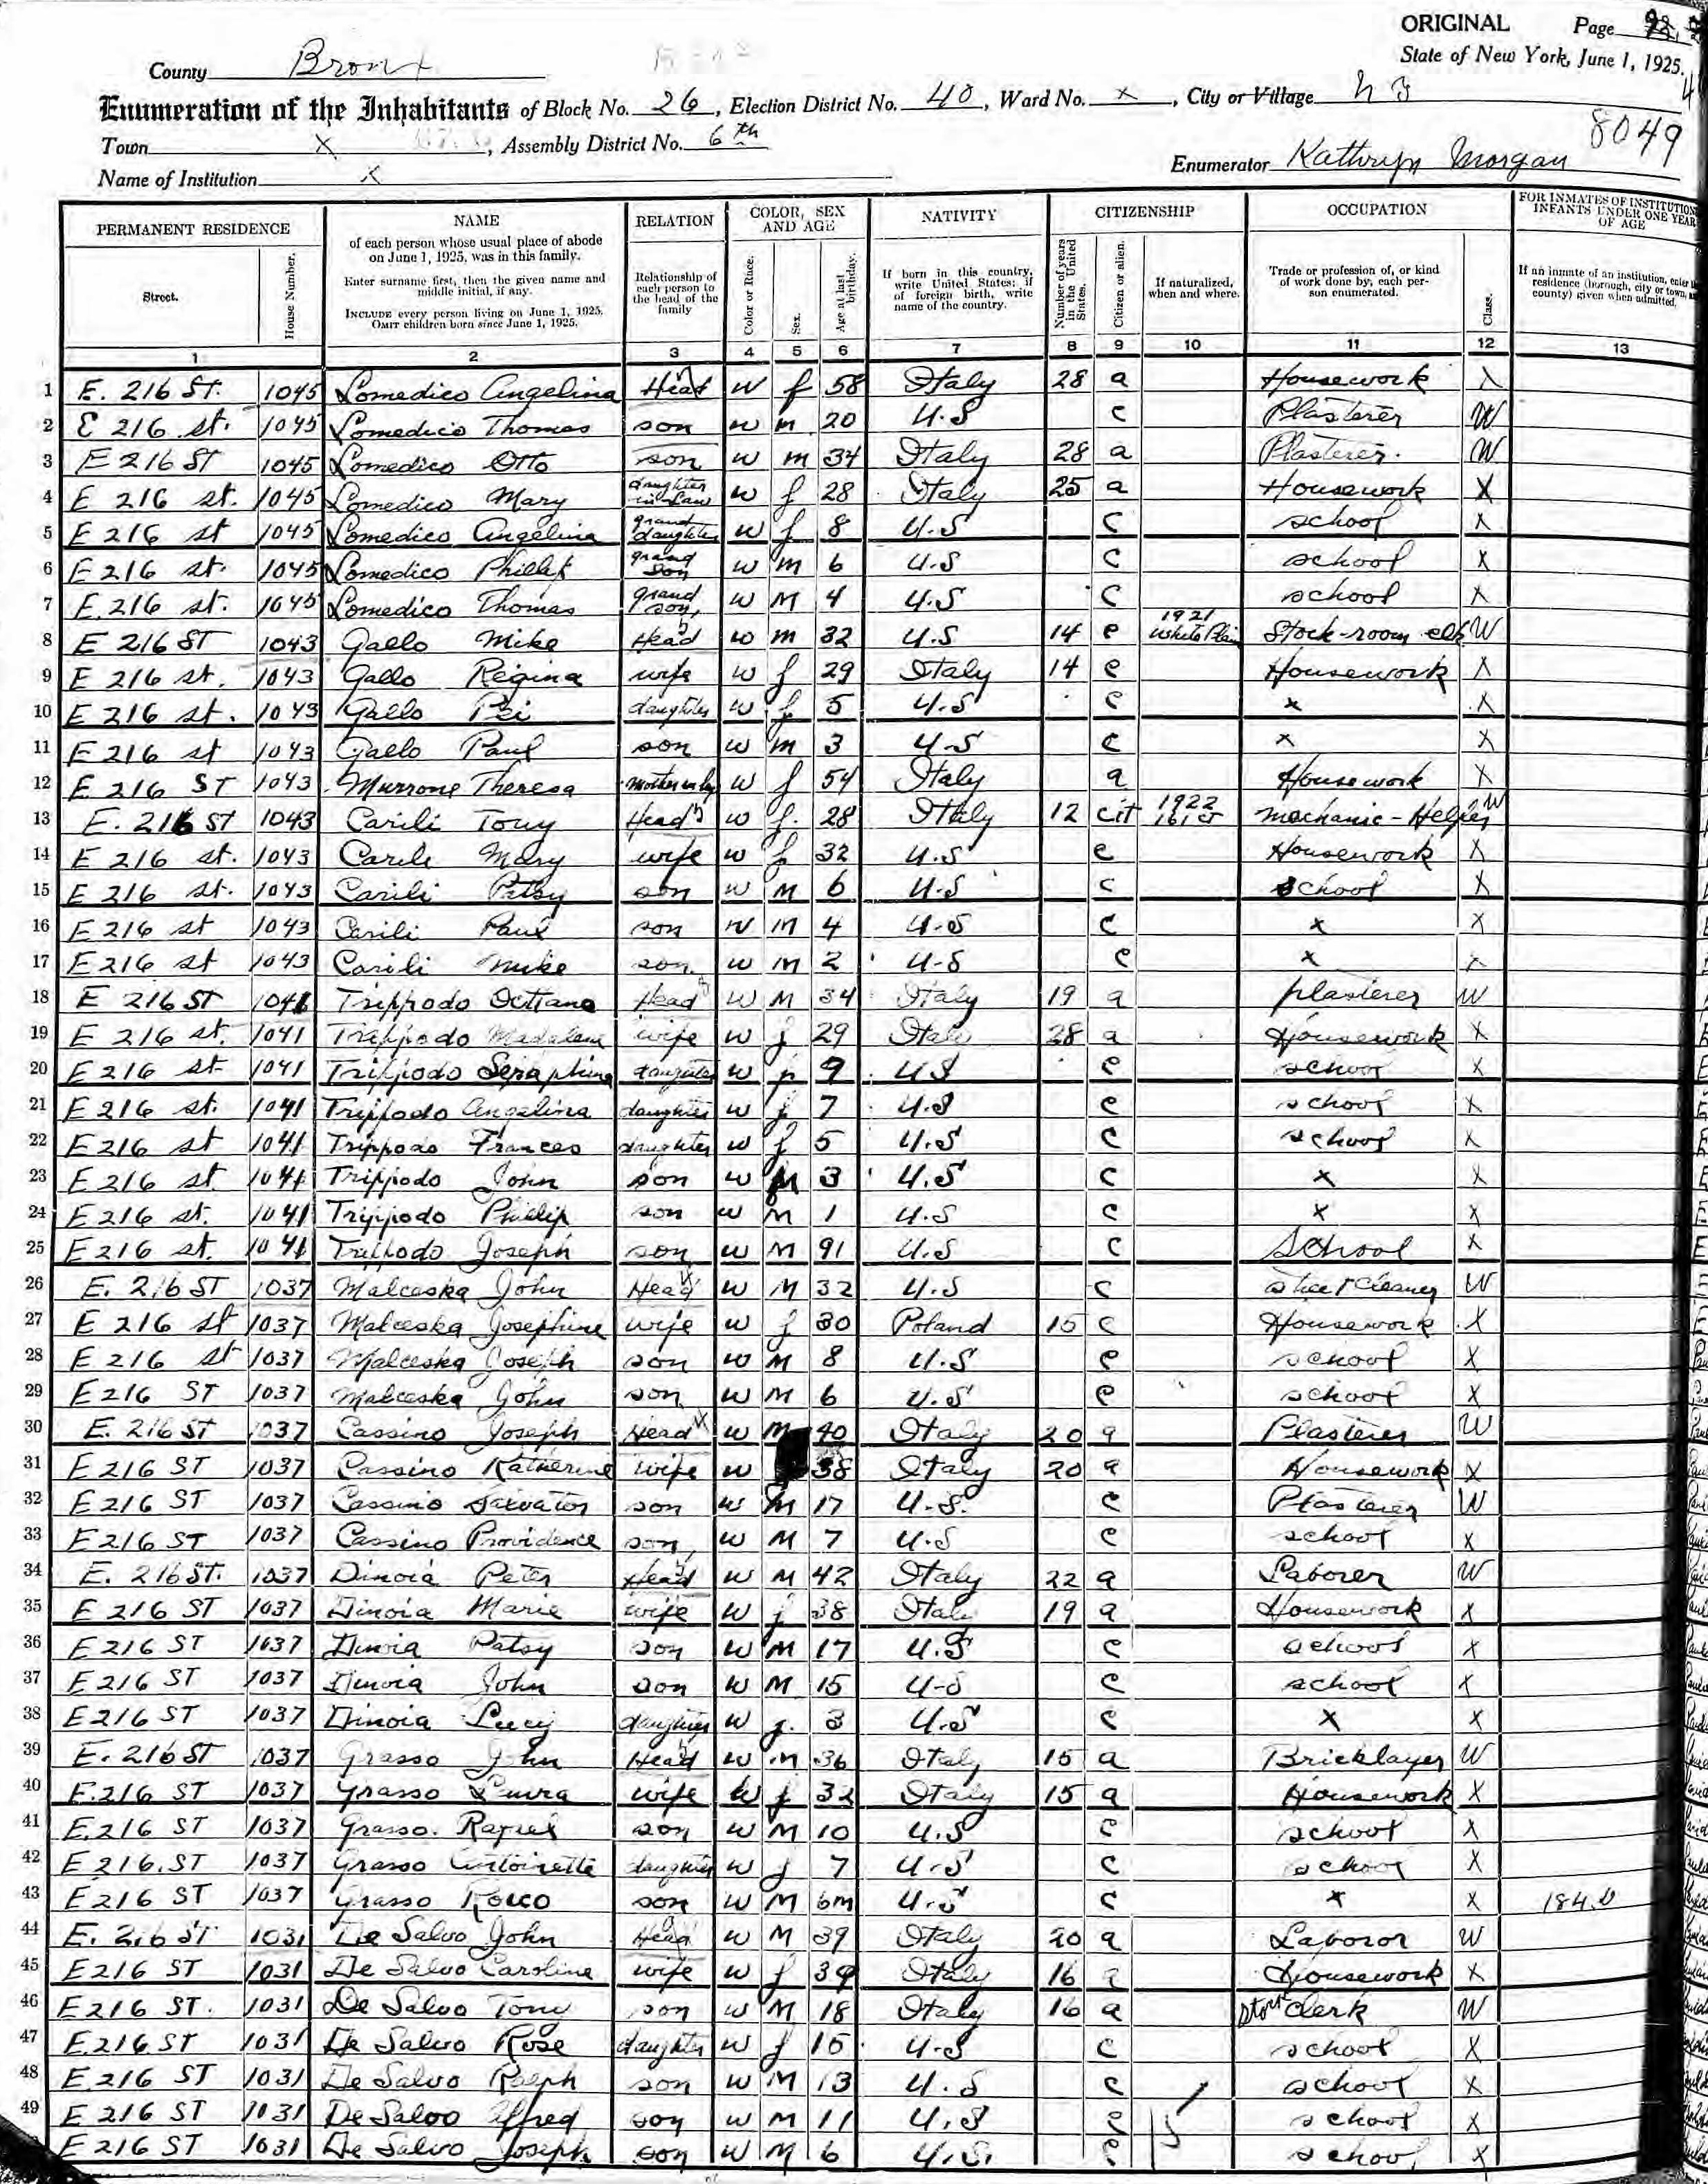 ORIGINAL Page
State of New York, June 1, 1925.
County Bronx
Enumeration of the Inhabitants of Block No. 26, Election District No. 40, Ward No. x, City or Village N Y
8049
Town X, Assembly District No. 6th
Enumerator Kathryn Morgan
Name of Institution X
PERMANENT RESIDENCE
Street.
House Number.
NAME
of each person whose usual place of abode on June 1, 1925, was in this family.
Enter surname first, then the given name and middle initial, if any.
INCLUDE every person living on June 1, 1925. OMIT children born since June 1, 1925.
RELATION
Relationship of each person to the head of the family
COLOR, SEX AND AGE
Color or Race.
Sex.
Age at last birthday.
NATIVITY
If born in this country, write United States; if of foreign birth, write name of the country.
CITIZENSHIP
Number of years in the United States.
Citizen or alien.
If naturalized, when and where.
OCCUPATION
Trade or profession of, or kind of work done by, each person enumerated.
Class.
FOR INMATES OF INSTITUTION INFANTS UNDER ONE YEAR OF AGE
If an inmate of an institution, enter residence (borough, city or town, county) given when admitted.
1 2 3 4 5 6 7 8 9 10 11 12 13
1 E. 216 St. 1045 Lomedico Angelina Head w f 58 Italy 28 a Housework X
2 E 216 st. 1045 Lomedico Thomas son w m 20 U.S c Plasterer W
3 E 216 St 1045 Lomedico Otto son w m 34 Italy 28 a Plasterer. W
4 E 216 st. 1045 Lomedico Mary daughter in law w f 28 Italy 25 a Housework X
5 E 216 st 1045 Lomedico Angelina grand daughter w f 8 U.S c school X
6 E 216 st. 1045 Lomedico Phillip grand son w m 6 U.S c school X
7 E. 216 st. 1045 Lomedico Thomas grand son w M 4 U.S c school X
8 E 216 ST 1043 Gallo Mike Head w m 32 U.S 14 c 1921 White Plain Stock-room clk W
9 E 216 st. 1043 Gallo Regina wife w f 29 Italy 14 c Housework X
10 E 216 st. 1043 Gallo daughter w f 5 U.S c x X
11 E 216 st 1043 Gallo Paul son w m 3 U.S c x X
12 E 216 ST 1043 Murrone Theresa mother in law w f 54 Italy a Housework X
13 E. 216 ST 1043 Carili Tony Head w f. 28 Italy 12 cit 1922 mechanic-Helper W
14 E 216 st. 1043 Carili Mary wife w f 32 U.S c Housework X
15 E 216 st. 1043 Carili Patsy son w M 6 U.S c school X
16 E 216 st 1043 Carili Paul son w M 4 U.S c x X
17 E 216 st 1043 Carili Mike son w M 2 U.S c x X
18 E 216 ST 1041 Trippodo Head w M 34 Italy 19 a plasterer W
19 E 216 st. 1041 Trippodo Madalene wife w f 29 Italy 28 a Housework X
20 E 216 st 1041 Trippodo Seraphina daughter w f 9 U.S c school X
21 E 216 st. 1041 Trippodo Angelina daughter w f 7 U.S c school X
22 E 216 st 1041 Trippodo Frances daughter w f 5 U.S c school X
23 E 216 st 1041 Trippodo John son w M 3 U.S c x X
24 E 216 st. 1041 Trippodo Phillip son w M 1 U.S c x X
25 E 216 st. 1041 Trippodo Joseph son w M 91 U.S c School X
26 E. 216 ST 1037 Malceska John Head w M 32 U.S c street cleaner W
27 E 216 st 1037 Malceska Josephine wife w f 30 Poland 15 c Housework X
28 E 216 st 1037 Malceska Joseph son w M 8 U.S c school X
29 E 216 ST 1037 Malceska John son w M 6 U.S c school X
30 E. 216 ST 1037 Cassino Joseph Head w M 40 Italy 20 a Plasterer W
31 E 216 ST 1037 Cassino Katherine wife w 38 Italy 20 a Housework X
32 E 216 ST 1037 Cassino Salvator son w M 17 U.S. c Plasterer W
33 E 216 ST 1037 Cassino Providence son w M 7 U.S c school X
34 E. 216 ST. 1037 Dinoia Peter Head w M 42 Italy 22 a Laborer W
35 E 216 ST 1037 Dinoia Marie wife w f 38 Italy 19 a Housework X
36 E 216 ST 1037 Dinoia Patsy son w M 17 U.S c school X
37 E 216 ST 1037 Dinoia John son w M 15 U.S c school X
38 E 216 ST 1037 Dinoia Lucy daughter w f. 3 U.S c x X
39 E. 216 ST 1037 Grasso John Head w m 36 Italy 15 a Bricklayer W
40 E. 216 ST 1037 Grasso Laura wife w f 32 Italy 15 a Housework X
41 E. 216 ST 1037 Grasso. son w M 10 U.S c school X
42 E 216. ST 1037 Grasso Antoinette daughter w f 7 U.S c school X
43 E 216 ST 1037 Grasso Rocco son w M 6m U.S c x X
44 E. 216 ST. 1031 De Salvo John Head w M 39 Italy 20 a Laboror W
45 E 216 ST 1031 De Salvo Caroline wife w f 39 Italy 16 a Housework X
46 E 216 ST. 1031 De Salvo Tony son w M 18 Italy 16 a Store clerk W
47 E. 216 ST 1031 De Salvo Rose daughter w f 15 U.S c school X
48 E. 216 ST 1031 De Salvo Ralph son w M 13 U.S c school X
49 E 216 ST 1031 De Salvo Alfred son w M 11 U.S c school X
E 216 ST 1031 De Salvo Joseph son w M 6 U.S. c school X